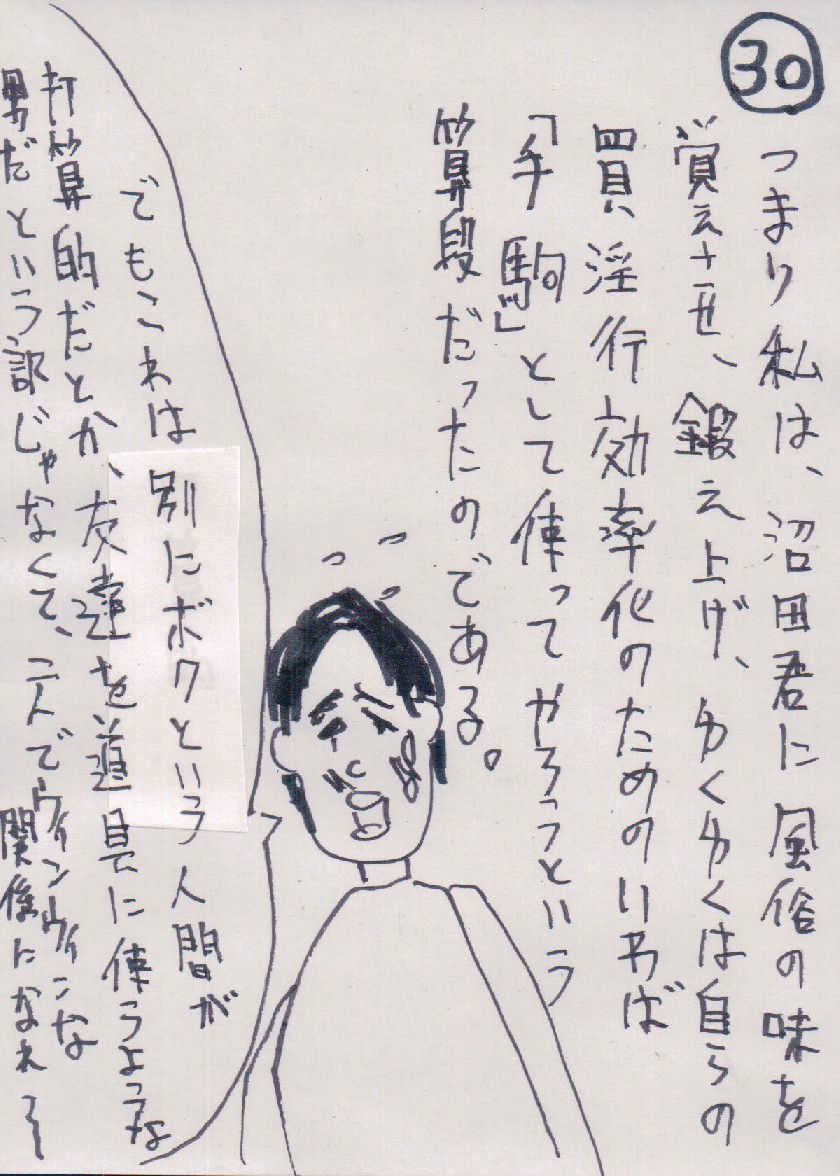 30
つまり私は、沼田君に風俗の味を
覚えさせ、鍛え上げ、ゆくゆくは自らの
買淫行効率化のためのいわば
「手駒」として使ってやろうという
算段だったのである。
でもこれは別にボクという人間が
打算的だとか、友達を道具に使うような
男だという訳じゃなくて、二人でウィンウィンな
関係になれ